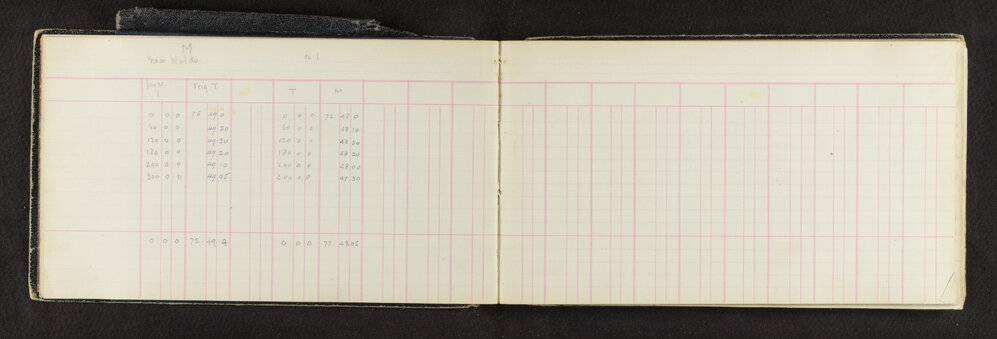 M
Trig T T M
0 0 0 75 49 0 0 0 0 72 48 0
60 0 0 49 20 60 0 0 48 10
120 0 0 49 30 120 0 0 48 30
180 0 0 49 20 180 0 0 48 20
240 0 0 49 10 240 0 0 48 00
300 0 0 49 05 300 0 0 47 30
0 0 0 75 49 14 0 0 0 72 48 05